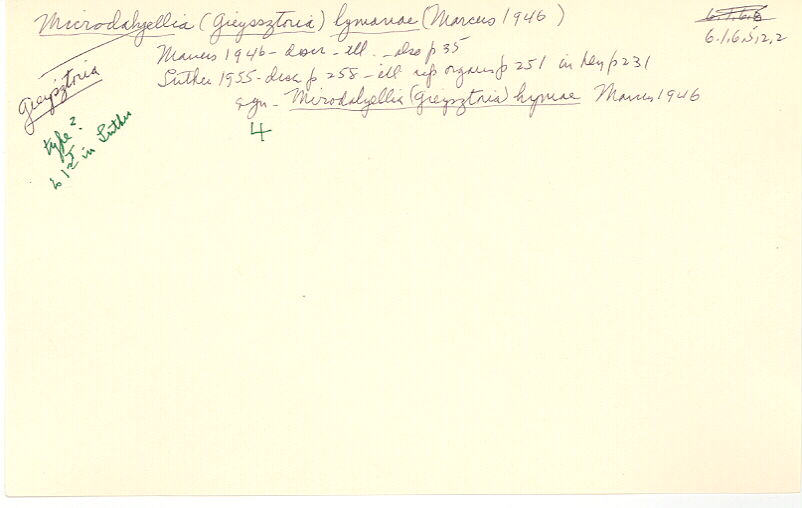 Microdalyellia (Gieyssztoria) hymanae (Marcus 1946)
6.1.6.6
6.1.6.5.2.2
Marcus 1946 - descr - ill. - also p 35
Gieysztoria
Luther 1955 - desc p 258 - ill rep organs p 251 in key p 231
syn - Mirodalyellia (Gieysztoria) hymae Marcus 1946
type?
4
is 1st in Luther